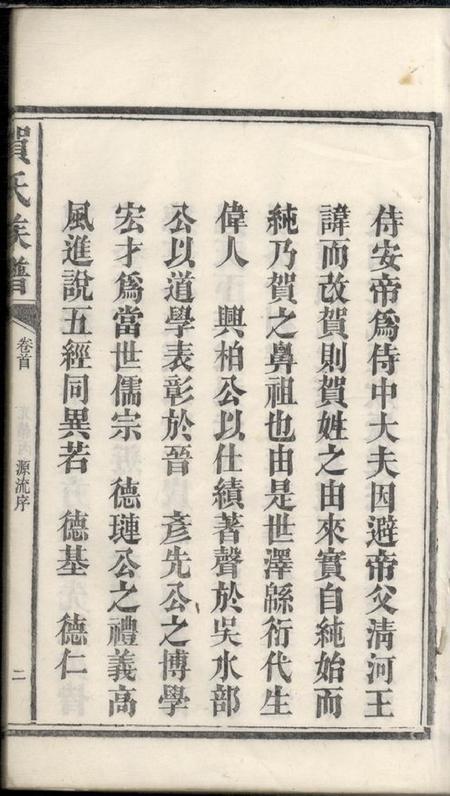 侍安帝爲侍中大夫因避帝父清河王
諱而改賀則賀姓之由來實自純始而
純乃賀之鼻祖也由是世澤緜衍代生
偉人　興柏公以仕績著聲於吳水部
公以道學表彰於晉　彥先公之博學
宏才爲當世儒宗　德璉公之禮義高
風進說五經同異若　德基　德仁
賀氏族譜
卷首
源流序
二